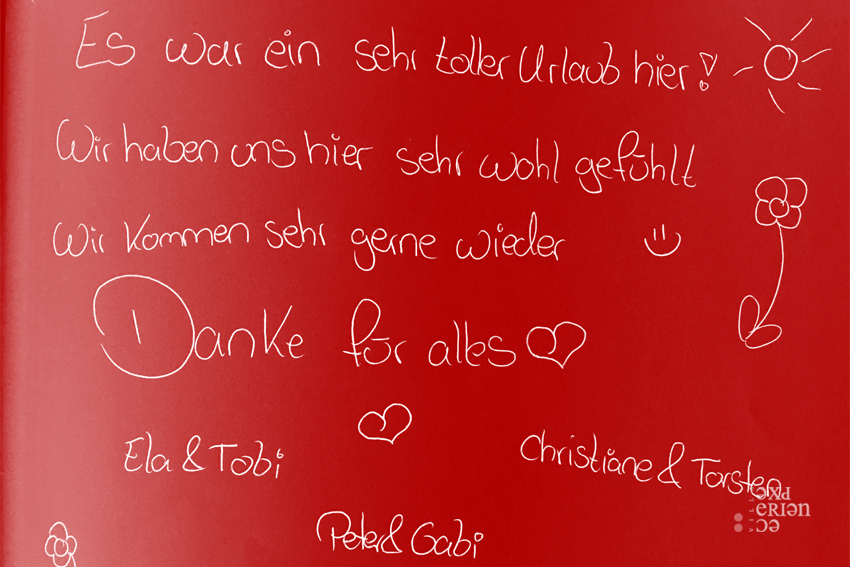 Es war ein sehr toller Urlaub hier!
Wir haben uns hier sehr wohl gefühlt
Wir kommen sehr gerne wieder
Danke für alles
Ela & Tobi
Christiane & Torsten
Peter & Gabi